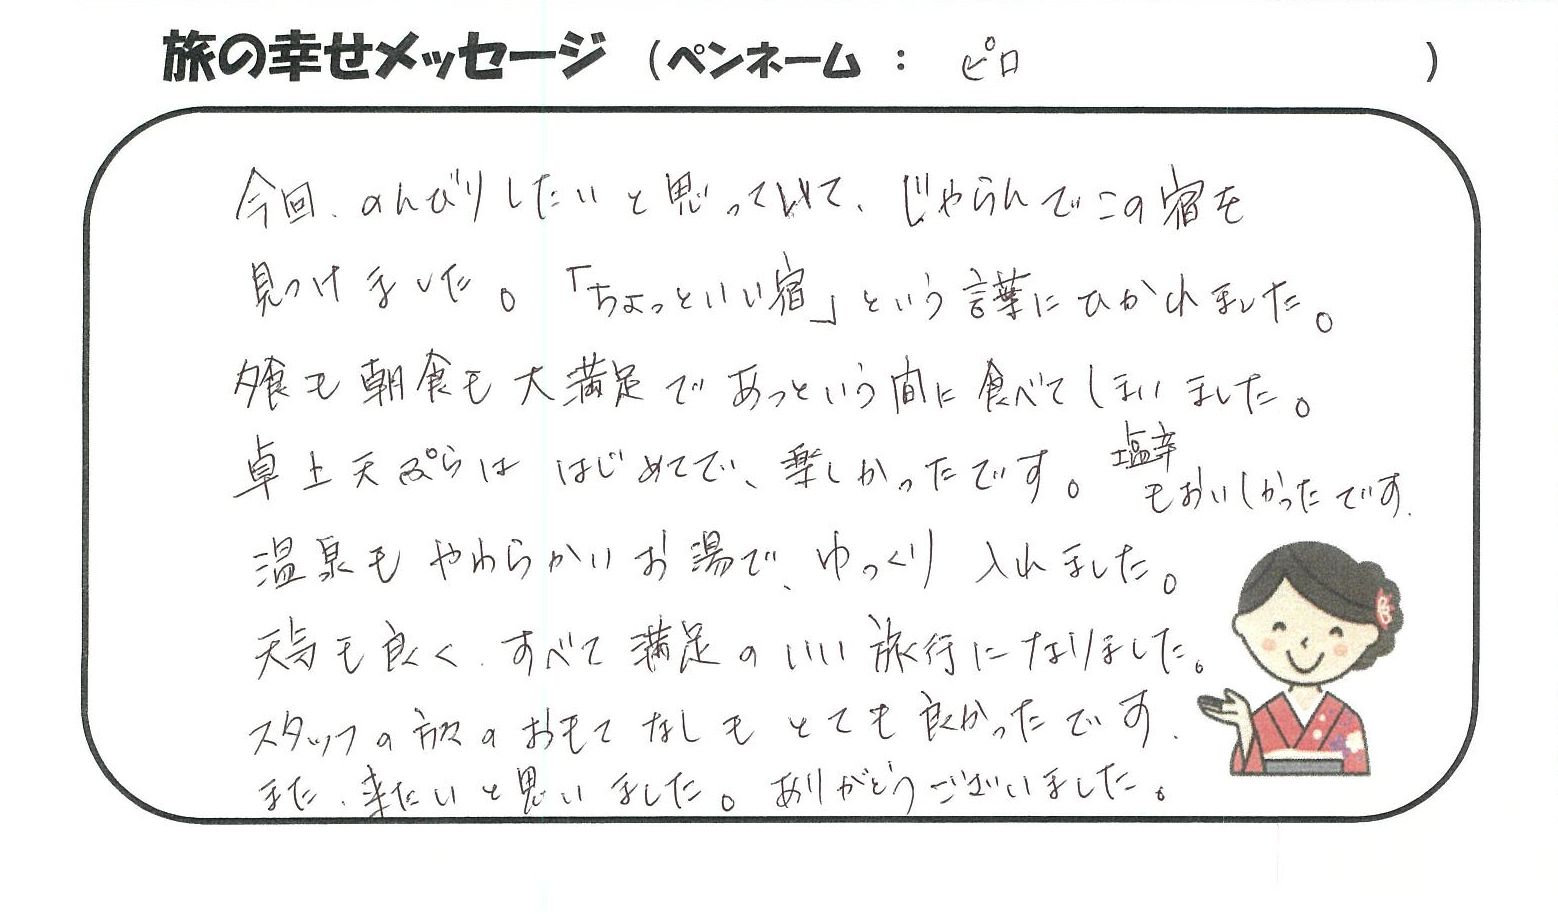 旅の幸せメッセージ (ペンネーム : ピロ )
今回、のんびりしたいと思っていて、じゃらんでこの宿を
見つけました。「ちょっといい宿」という言葉にひかれました。
夕食も朝食も大満足であっという間に食べてしまいました。
卓上天ぷらははじめてで、楽しかったです。塩辛
もおいしかったです.
温泉もやわらかいお湯で、ゆっくり入れました。
天気も良く、すべて満足のいい旅行になりました。
スタッフの方々のおもてなしもとても良かったです.
また、来たいと思いました。ありがとうございました。